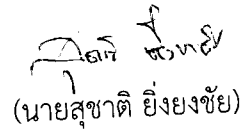 (นายสุชาติ ยิ่งยงชัย)